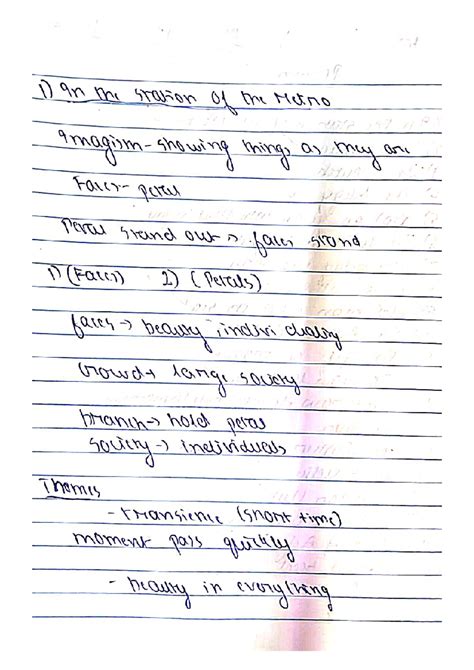 1) In the station of the Metro
Imagism - showing things as they are
Faces - petal
Petal stand out → faces stand
1) (Faces) 2) (Petals)
faces → beauty individuality
Crowd → large society
branch → hold petal
society → individuals
Themes
- transience (short time)
moment pass quickly
- beauty in everything